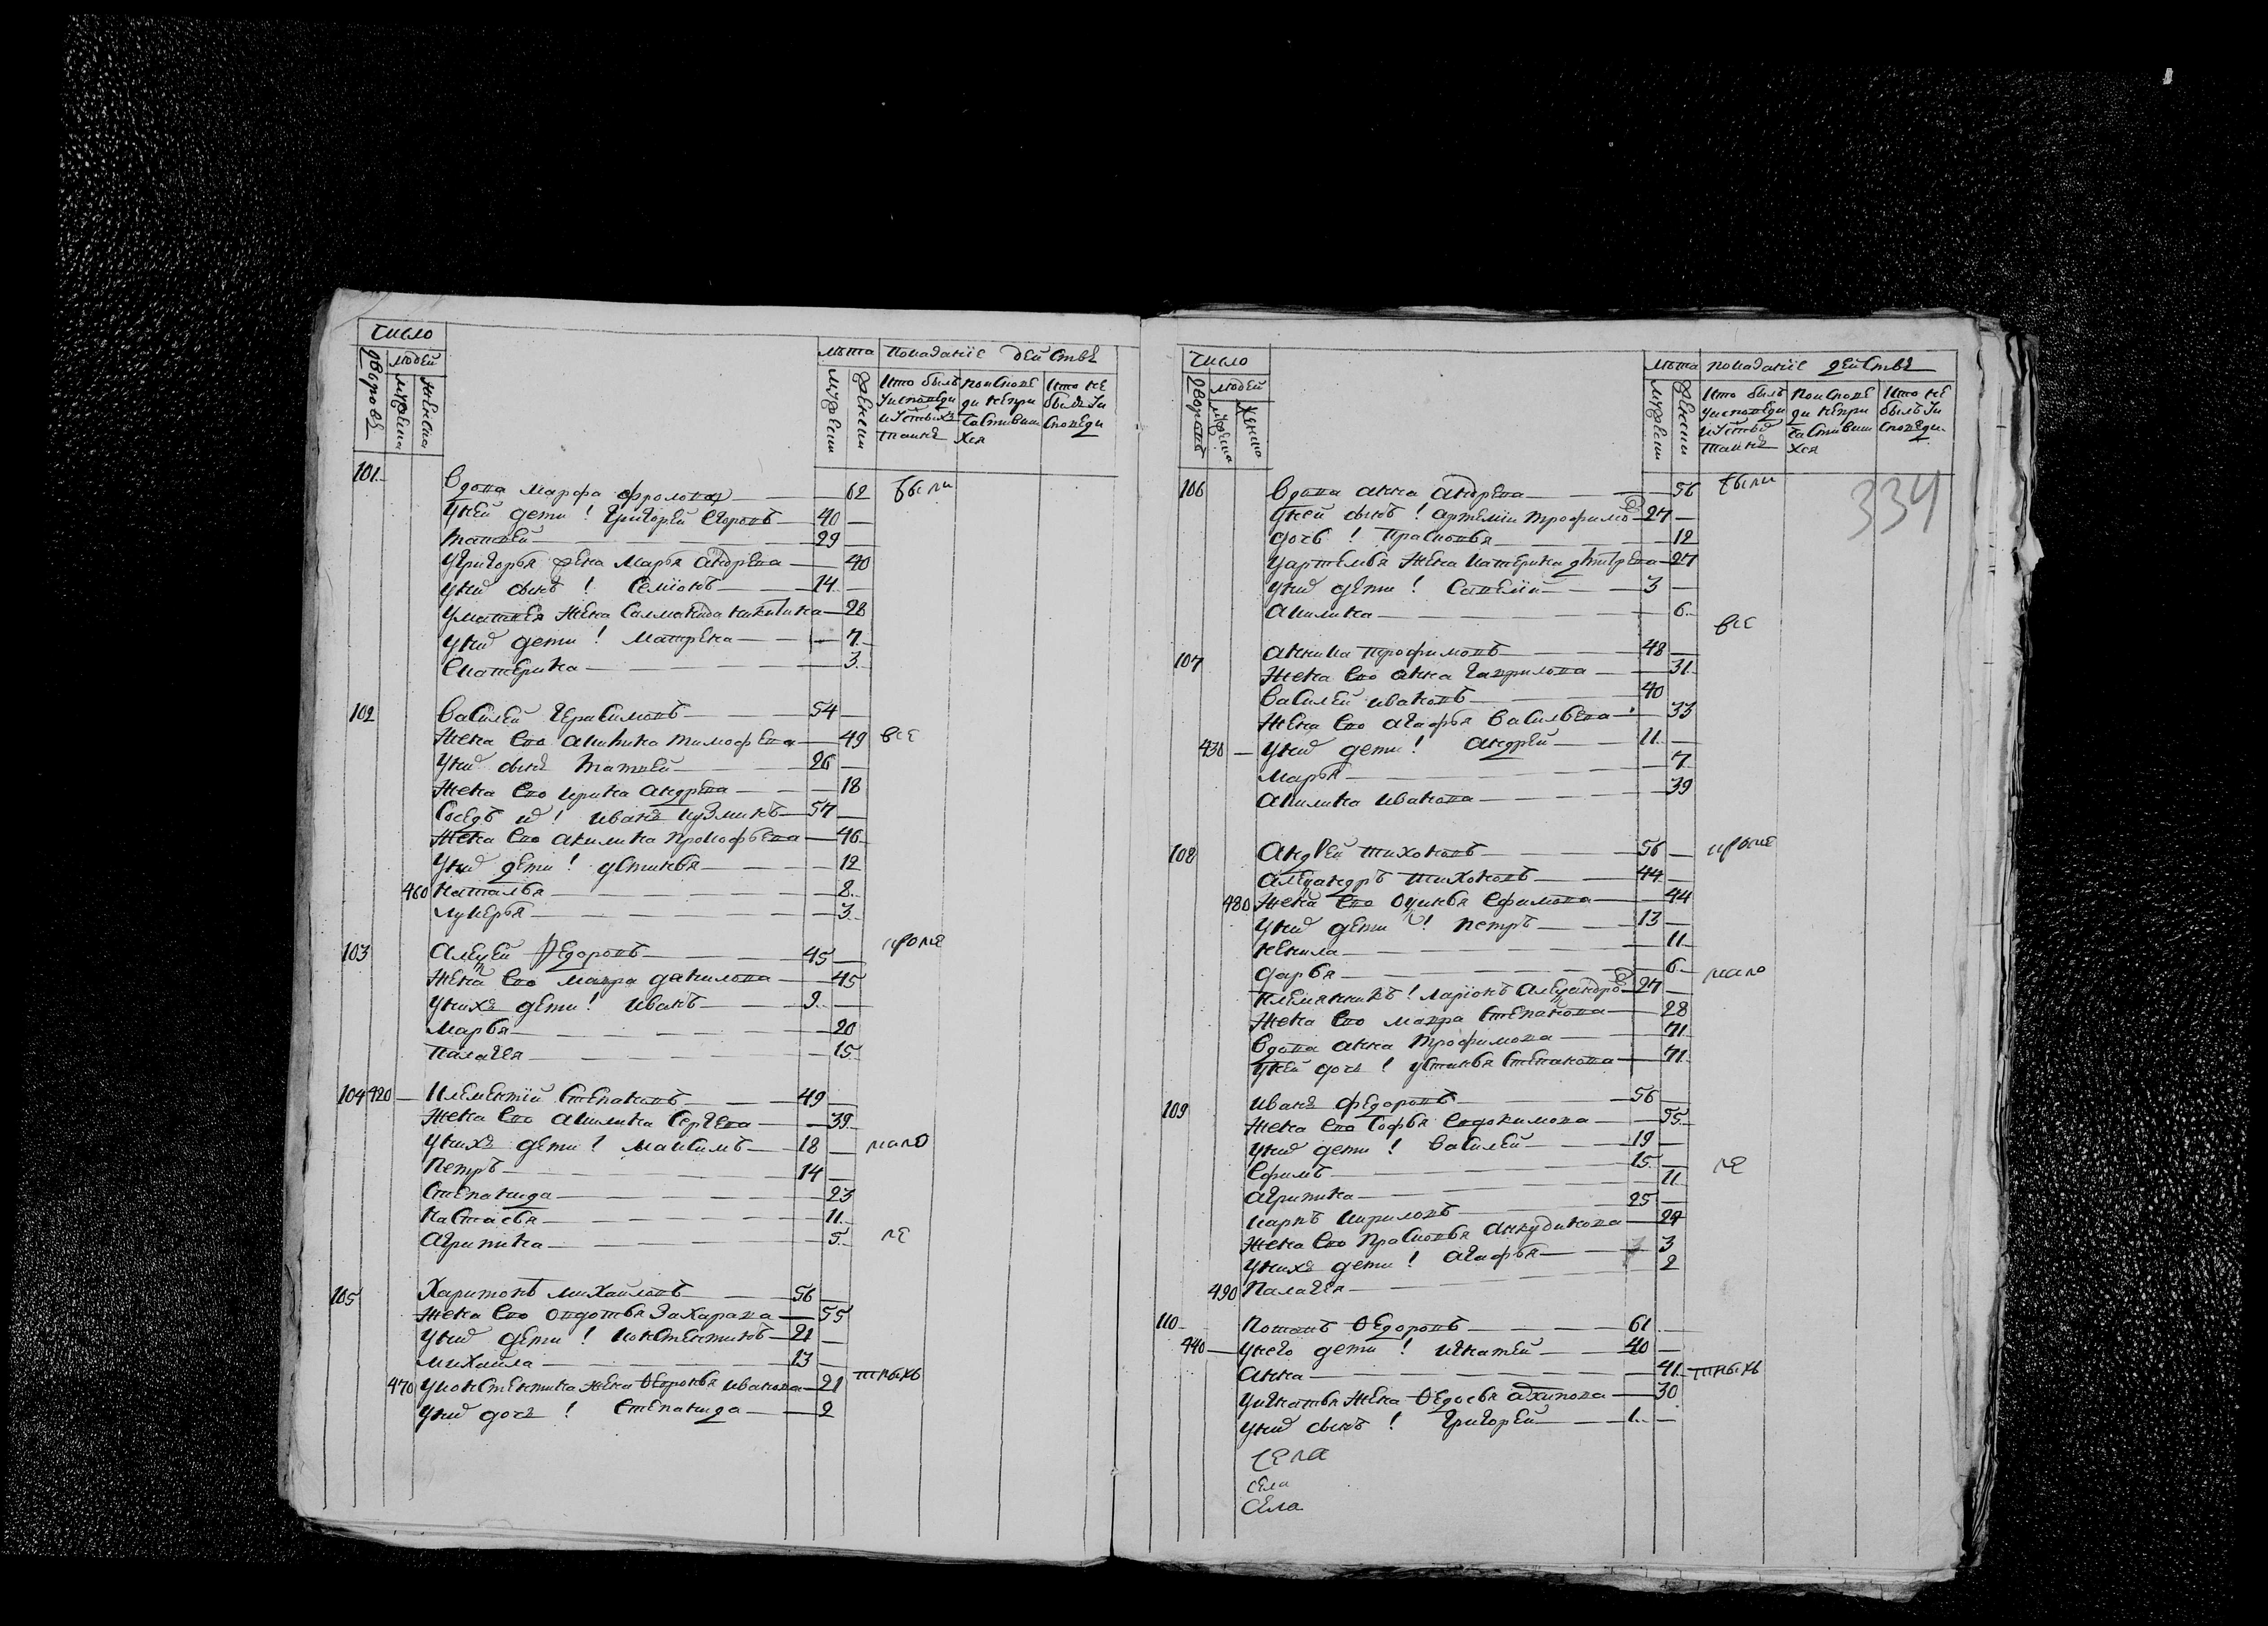 число
дворовъ
людей
мужеска
женска
лѣта
мужески
женски
показаніе действъ
кто былъ
у исповеди
и с:тыхъ
таинъ
по испове
ди не при
частивши
хся
кто не
былъ у и
споведи
101
вдова марфа фролова 62 были
у ней дети: григорей егоровъ 40
матвей 29
у григорья жена марья андрѣева 40
у них сынъ: семіонъ 14
у матвея жена саламанида никитина 28
у них дети: матрена 7
екатерина 3
102 василей герасимовъ 54
жена ево акилина тимофеева 49 все
у них сынъ матвей 26
жена ево ирина андреева 18
соседъ их: иванъ кузминъ 57
жена ево акилина прокофьева 46
у них дети: устинья 12
460 наталья 8
лукерья 3
103 алексей федоровъ 45 кроме
жена ево мавра данилова 45
у нихъ дети: иванъ 9
марья 20
палагея 15
104 420 клементій степановъ 49
жена ево акилина сергеева 39
у нихъ дети: максимъ 18 мало
петръ 14
степанида 23
настасья 11
агрипина 5 ле
105 харитонъ михайловъ 56
жена ево овдотья захарова 55
у них дети: констентинъ 21
михайла 13
470 у констентина жена ѳевронья иванова 21 тныхъ
у них дочь: степанида 2
число
дворовъ
людей
мужеска
женска
лѣта
мужески
женски
показаніе действъ
кто былъ
у исповеди
и с:тых
таинъ
по испове
ди не при
частивши
хся
кто не
былъ у и
споведи
334
106 вдова анна андрева 56 были
у ней сынъ: артемiи трофимовъ 27
дочь: прасковья 12
у артемья жена катерина дмитрева 27
у них дети: савелiй 3
акилина 6
все
107 аникиа трофимовъ 48
жена ево анна гаврилова 31
василей ивановъ 40
жена ево агафья васильева 33
430 у них дети: андрей 11
марья 7
акилина иванова 39
108 андрей тихоновъ 56 кроме
александръ тихоновъ 44
480 жена ево оксинья ефимова 44
у них дети: петръ 13
ненила 11
дарья 6 мало
племянникъ: ларіонъ александровъ 27
жена ево мавра степанова 28
вдова анна трофимова 71
у ней дочь: устинья степанова 71
109 иванъ федоровъ 56
жена ево софья евдокимова 55
у них дети: василей 19
ефимъ 15 ле
агрипина 11
карпъ кириловъ 25
жена ево прасковья анкудинова 27
у нихъ дети: агафья 3
490 палагея 2
110 потапъ ѳедоровъ 61
440 у него дети: игнатей 40
анна 41 тныхъ
у игнатья жена ѳедосья архипова 30
у них сынъ: григорей 1
села
села
села